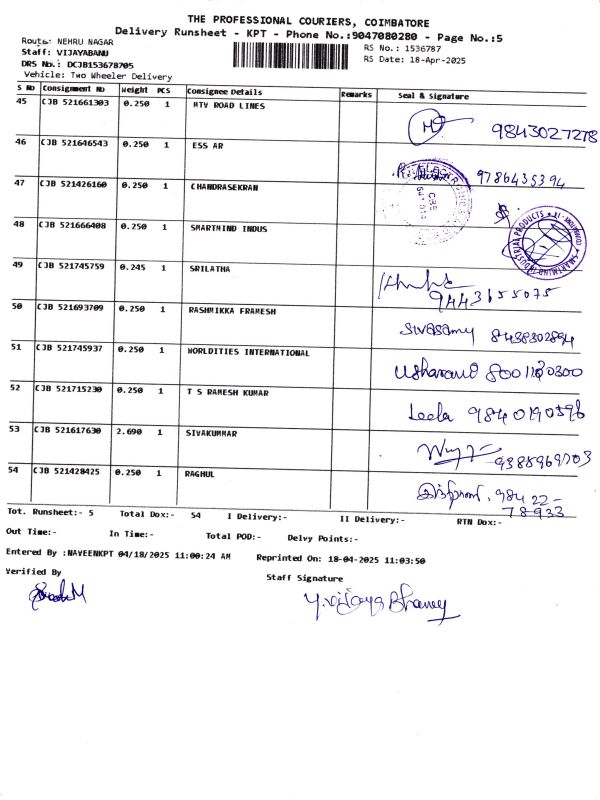 THE PROFESSIONAL COURIERS, COIMBATORE
Delivery Runsheet - KPT - Phone No.:9047080280 - Page No.:5
Route: NEHRU NAGAR
RS No.: 1536787
Staff: VIJAYABANU
RS Date: 18-Apr-2025
DRS No.: DCJB153678705
Vehicle: Two Wheeler Delivery
S No Consignment No Weight PCS Consignee Details Remarks Seal & Signature
45 CJB 521661303 0.250 1 MTV ROAD LINES
9843027278
46 CJB 521646543 0.250 1 ESS AR
9786435394
47 CJB 521426160 0.250 1 CHANDRASEKRAN
48 CJB 521666408 0.250 1 SMARTMIND INDUS
SMARTMIND INDUSTRIAL PRODUCTS
49 CJB 521745759 0.245 1 SRILATHA
9443655075
50 CJB 521693709 0.250 1 RASHMIKKA FRAMESH
Sivasamy 8438302894
51 CJB 521745937 0.250 1 WORLDITIES INTERNATIONAL
52 CJB 521715230 0.250 1 T S RAMESH KUMAR
Leela 9840190596
53 CJB 521617630 2.690 1 SIVAKUMMAR
9388969703
54 CJB 521428425 0.250 1 RAGHUL
98422-
78933
Tot. Runsheet:- 5 Total Dox:- 54 I Delivery:- II Delivery:- RTN Dox:-
Out Time:- In Time:- Total POD:- Delvy Points:-
Entered By :NAVEENKPT 04/18/2025 11:00:24 AM Reprinted On: 18-04-2025 11:03:50
Verified By
Staff Signature
Y. Vijaya Bhanu